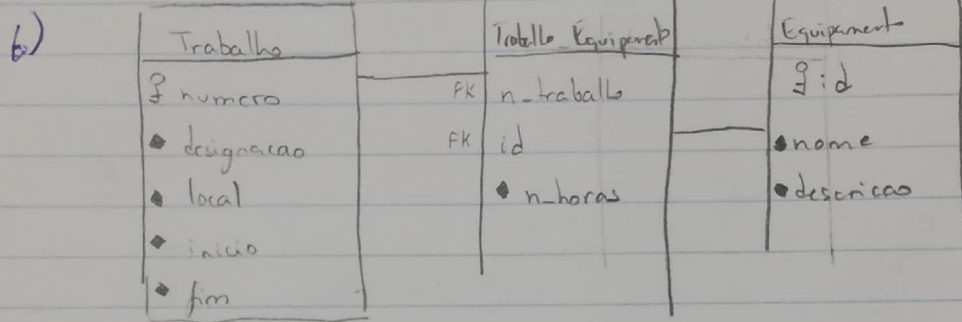 b)
Trabalho
numero
designacao
local
inicio
fim
Trabalho_Equipament
FK n_trabalho
FK id
n_horas
Equipament
id
nome
descricao